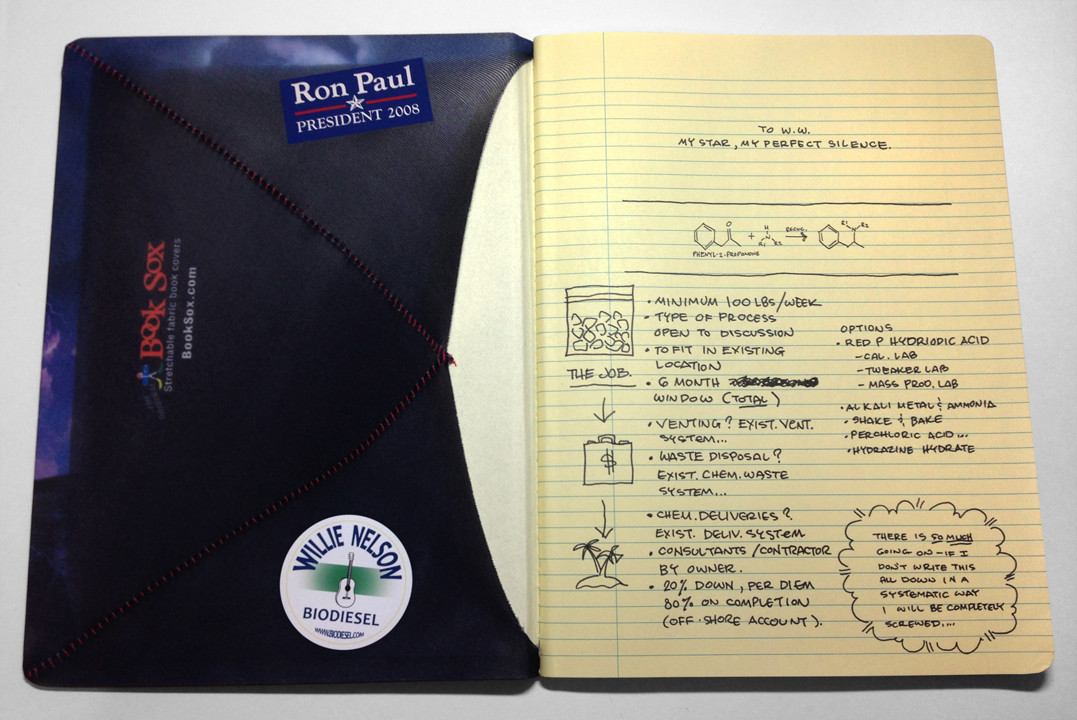 Ron Paul
PRESIDENT 2008
Book Sox
Stretchable fabric book covers
BookSox.com
WILLIE NELSON
BIODIESEL
WWW.BIODIESEL.COM
TO W.W.
MY STAR, MY PERFECT SILENCE.
O
H
+ N
R1 R2
R1 R2
N
PHENYL-2-PROPANONE
THE JOB.
$
• MINIMUM 100 LBS/WEEK
• TYPE OF PROCESS
OPEN TO DISCUSSION
• TO FIT IN EXISTING
LOCATION
• 6 MONTH
WINDOW (TOTAL)
• VENTING? EXIST. VENT.
SYSTEM...
• WASTE DISPOSAL?
EXIST. CHEM. WASTE
SYSTEM...
• CHEM. DELIVERIES?
EXIST. DELIV. SYSTEM
• CONSULTANTS/CONTRACTOR
BY OWNER.
• 20% DOWN, PER DIEM
80% ON COMPLETION
(OFF-SHORE ACCOUNT).
OPTIONS
• RED P HYDRIODIC ACID
- CAL. LAB
- TWEAKER LAB
- MASS PROD. LAB
• ALKALI METAL & AMMONIA
• SHAKE & BAKE
• PERCHLORIC ACID...
• HYDRAZINE HYDRATE
THERE IS SO MUCH
GOING ON - IF I
DON'T WRITE THIS
ALL DOWN IN A
SYSTEMATIC WAY
I WILL BE COMPLETELY
SCREWED....